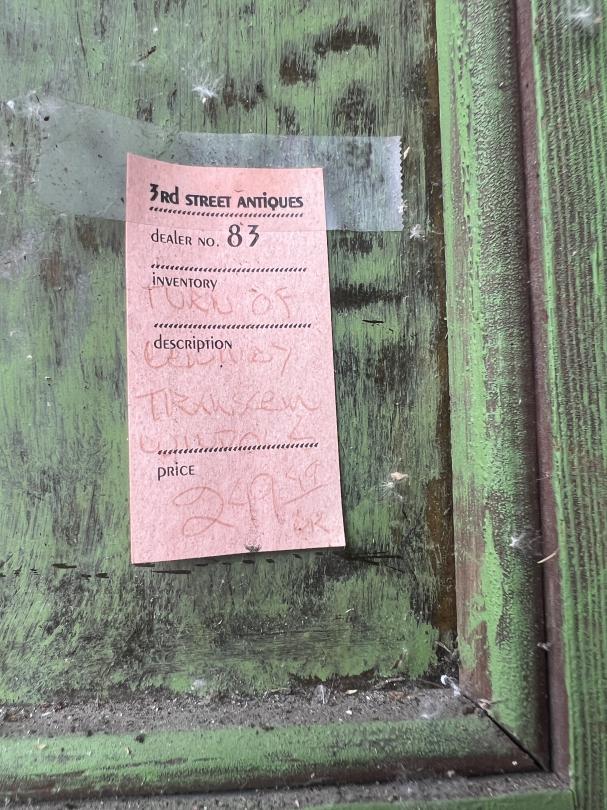 3rd STREET ANTIQUES
DEALER NO. 83
INVENTORY
TURN OF
DESCRIPTION
CENTURY
TRANSOM
WINDOWS
PRICE